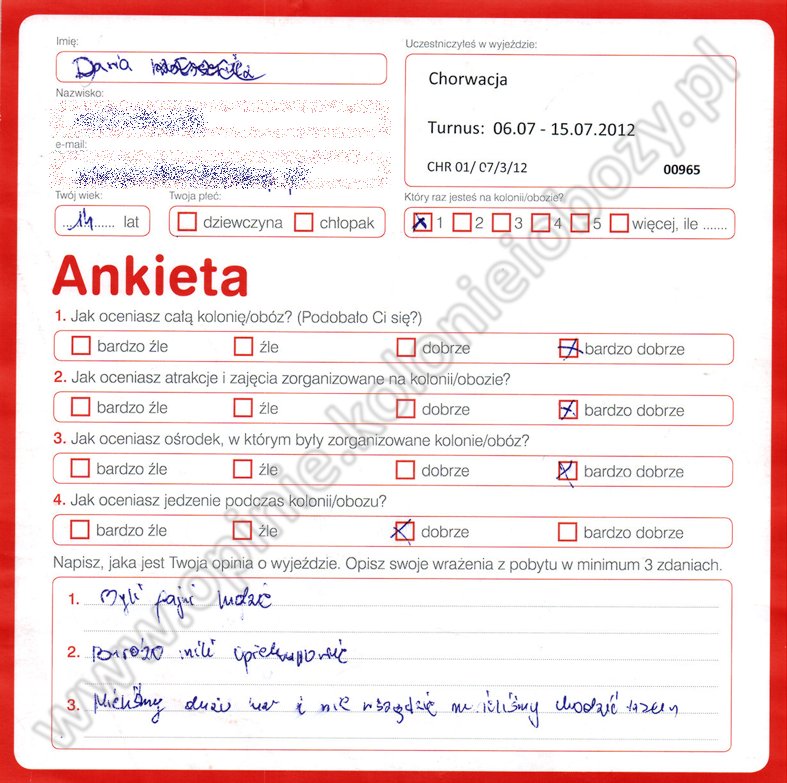 Imię:
Uczestniczyłeś w wyjeździe:
Daria
Chorwacja
Nazwisko:
Turnus: 06.07 - 15.07.2012
e-mail:
CHR 01/ 07/3/12 00965
Twój wiek:
Twoja płeć:
Który raz jesteś na kolonii/obozie?
14 lat
dziewczyna chłopak
1 2 3 4 5 więcej, ile .......
Ankieta
1. Jak oceniasz całą kolonię/obóz? (Podobało Ci się?)
bardzo źle źle dobrze bardzo dobrze
2. Jak oceniasz atrakcje i zajęcia zorganizowane na kolonii/obozie?
bardzo źle źle dobrze bardzo dobrze
3. Jak oceniasz ośrodek, w którym były zorganizowane kolonie/obóz?
bardzo źle źle dobrze bardzo dobrze
4. Jak oceniasz jedzenie podczas kolonii/obozu?
bardzo źle źle dobrze bardzo dobrze
Napisz, jaka jest Twoja opinia o wyjeździe. Opisz swoje wrażenia z pobytu w minimum 3 zdaniach.
1. Byli fajni ludzie
2. Bardzo mili opiekunowie
3. Mieliśmy dużo i nie wszędzie musieliśmy chodzić razem
www.opinie.kolonieiobozy.pl